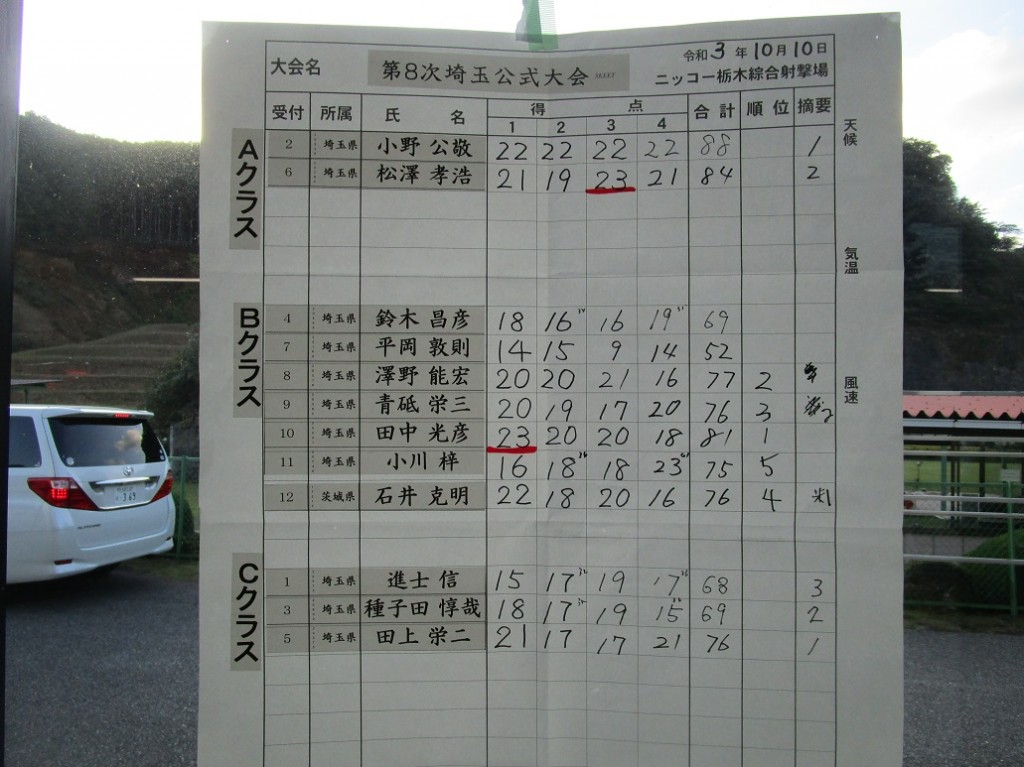 令和 3 年 10月 10日
大会名 第8次埼玉公式大会 ニッコー栃木綜合射撃場
受付 所属 氏 名 得 点 合計 順位 摘要
1 2 3 4
天候
気温
風速
Aクラス
2 埼玉県 小野 公敬 22 22 22 22 88 1
6 埼玉県 松澤 孝浩 21 19 23 21 84 2
Bクラス
4 埼玉県 鈴木 昌彦 18 16 16 19 69
7 埼玉県 平岡 敦則 14 15 9 14 52
8 埼玉県 澤野 能宏 20 20 21 16 77 2
9 埼玉県 青砥 栄三 20 19 17 20 76 3
10 埼玉県 田中 光彦 23 20 20 18 81 1
11 埼玉県 小川 梓 16 18 18 23 75 5
12 茨城県 石井 克明 22 18 20 16 76 4
Cクラス
1 埼玉県 進士 信 15 17 19 17 68 3
3 埼玉県 種子田 惇哉 18 17 19 15 69 2
5 埼玉県 田上 栄二 21 17 17 21 76 1
・369